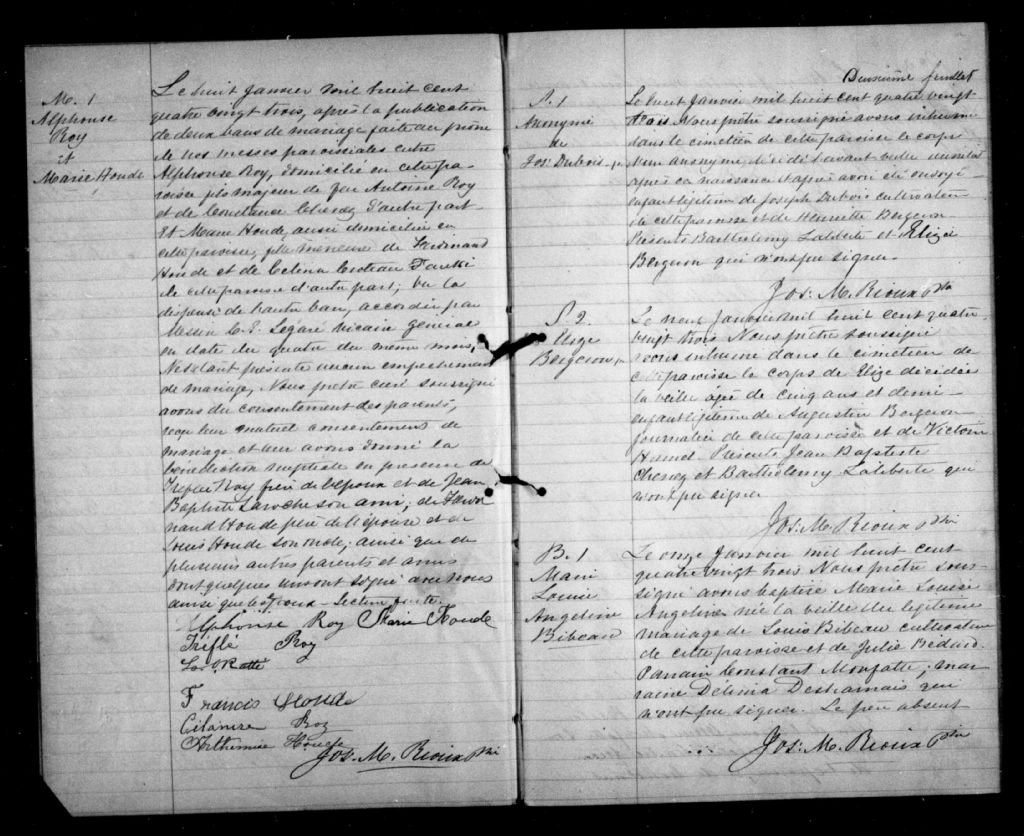 M. 1
Alphonse
Roy
et
Marie Houde
Le huit janvier mil huit cent
quatre vingt trois, après la publication
de deux bans de mariage faite au prône
de nos messes paroissiales entre
Alphonse Roy, domicilié en cette pa-
roisse fils majeur de feu Antoine Roy
et de Constance Chenez d'autre part
Et Marie Houde, aussi domiciliée en
cette paroisse, fille mineure de Ferdinand
Houde et de Celina Croteau aussi
de cette paroisse d'autre part; vu la
dispense de l'autre ban, accordée par
Messire C. E. Legaré vicaire général
en date du quatre du même mois,
Ne s'étant présenté aucun empêchement
de mariage, Nous prêtre curé soussigné
avons du consentement des parents,
reçu leur mutuel consentement de
mariage et leur avons donné la
bénédiction nuptiale en présence de
Trefflé Roy frère de l'époux et de Jean
Baptiste Laroche son ami; de Ferdi
nand Houde père de l'épouse et de
Louis Houde son oncle; ainsi que de
plusieurs autres parents et amis
dont quelques uns ont signé avec nous
ainsi que les époux - Lecture faite.
Alphonse Roy Marie Houde
Trifflé Roy
Francis Houde
Roy
Arthémise Houde
Jos: M. Rioux Ptre
Deuxième feuillet
S. 1
Anonyme
de
Jos: Dubois
Le huit Janvier mil huit cent quatre vingt
trois Nous prêtre soussigné avons inhumé
dans le cimetière de cette paroisse le corps
d'un anonyme décédé l'avant veille aussitôt
après sa naissance et après avoir été ondoyé
enfant légitime de Joseph Dubois cultivateur
de cette paroisse et de Henriette Bergeron
Présents Barthelemy Laliberté et Elizé
Bergeron qui n'ont pu signer.
Jos: M. Rioux Ptre
S. 2.
Elize
Bergeron
Le neuf janvier mil huit cent quatre
vingt trois Nous prêtre soussigné
avons inhumé dans le cimetière de
cette paroisse le corps de Elize décédée
la veille agée de cinq ans et demi
enfant légitime de Augustin Bergeron
journalier de cette paroisse et de Victoria
Hamel Présents Jean Baptiste
Chenez et Barthelemy Laliberté qui
n'ont pu signer
Jos: M. Rioux Ptre
B. 1
Marie
Louise
Angeline
Bibeau
Le onze Janvier mil huit cent
quatre vingt trois Nous prêtre sous-
signé avons baptisé Marie Louise
Angeline née la veille du légitime
mariage de Louis Bibeau cultivateur
de cette paroisse et de Julie Bédard
Parrain Constant Monfatte; mar
raine Délima Desharnais qui
n'ont pu signer. Le père absent
Jos: M. Rioux Ptre